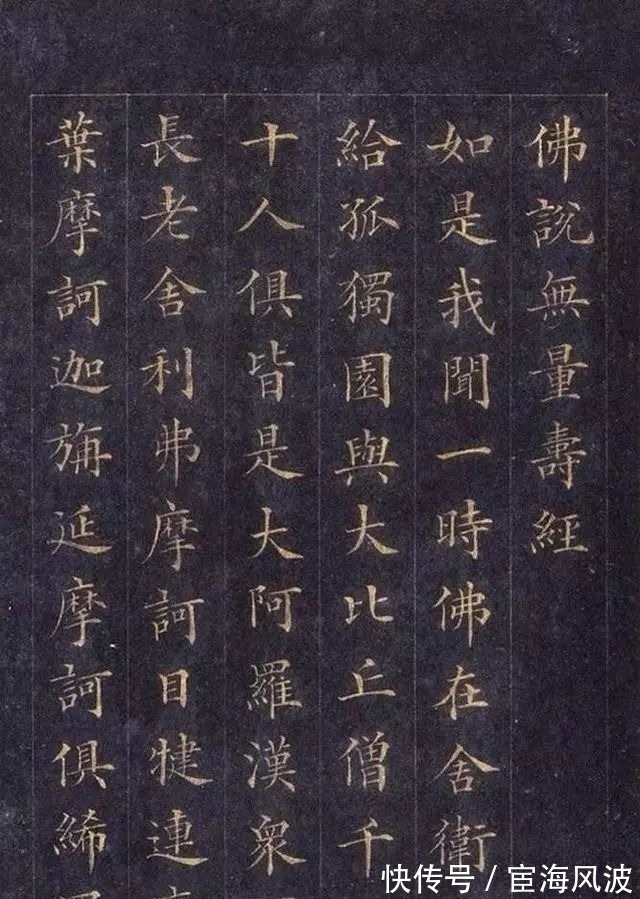 佛說無量壽經
如是我聞一時佛在舍衛
給孤獨園與大比丘僧千
十人俱皆是大阿羅漢衆
長老舍利弗摩訶目犍連
葉摩訶迦旃延摩訶俱絺
快传号 / 宦海风波